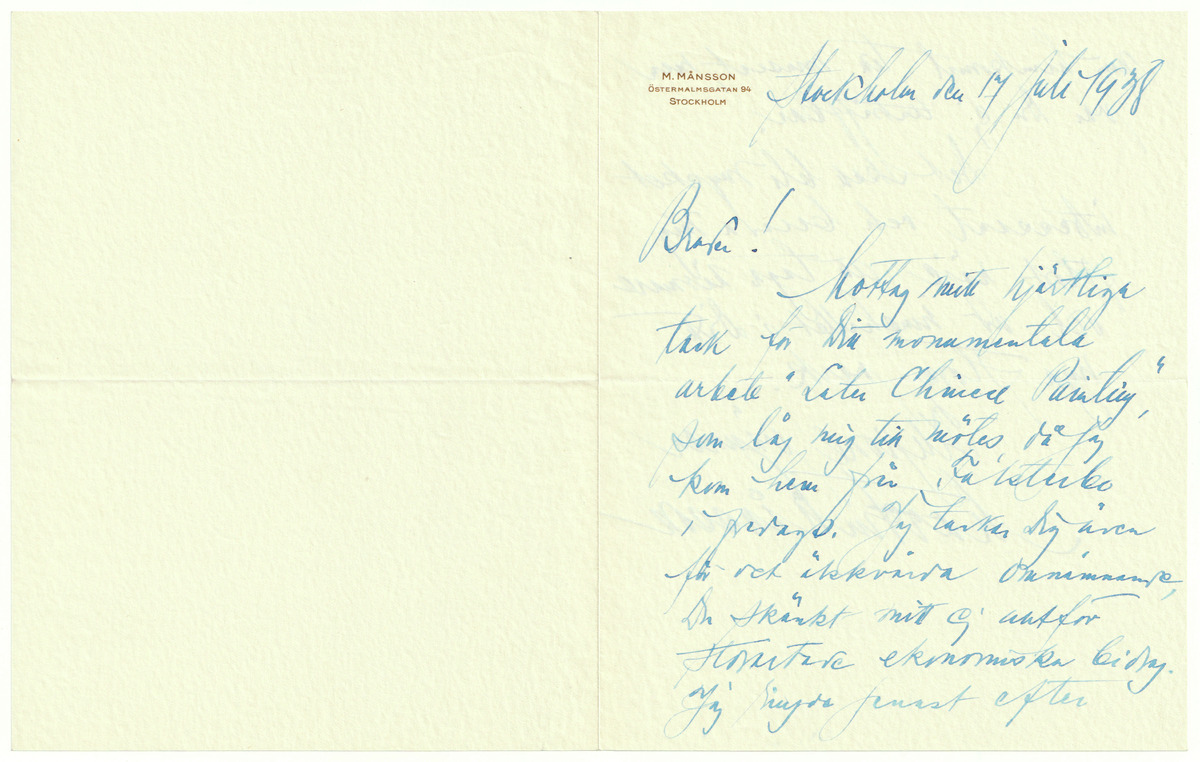 M. MÅNSSON
ÖSTERMALMSGATAN 94
STOCKHOLM
Stockholm den 17 juli 1938
Broder!
Mottag mitt hjärtliga
tack för Ditt monumentala
arbete "Later Chinese Painting",
som låg mig till mötes, då jag
kom hem från Falsterbo
i fredags. Jag tackar Dig även
för det älskvärda omnämnande,
Du skänkt mitt ej allt för
storartade ekonomiska bidrag.
Jag ringde genast efter